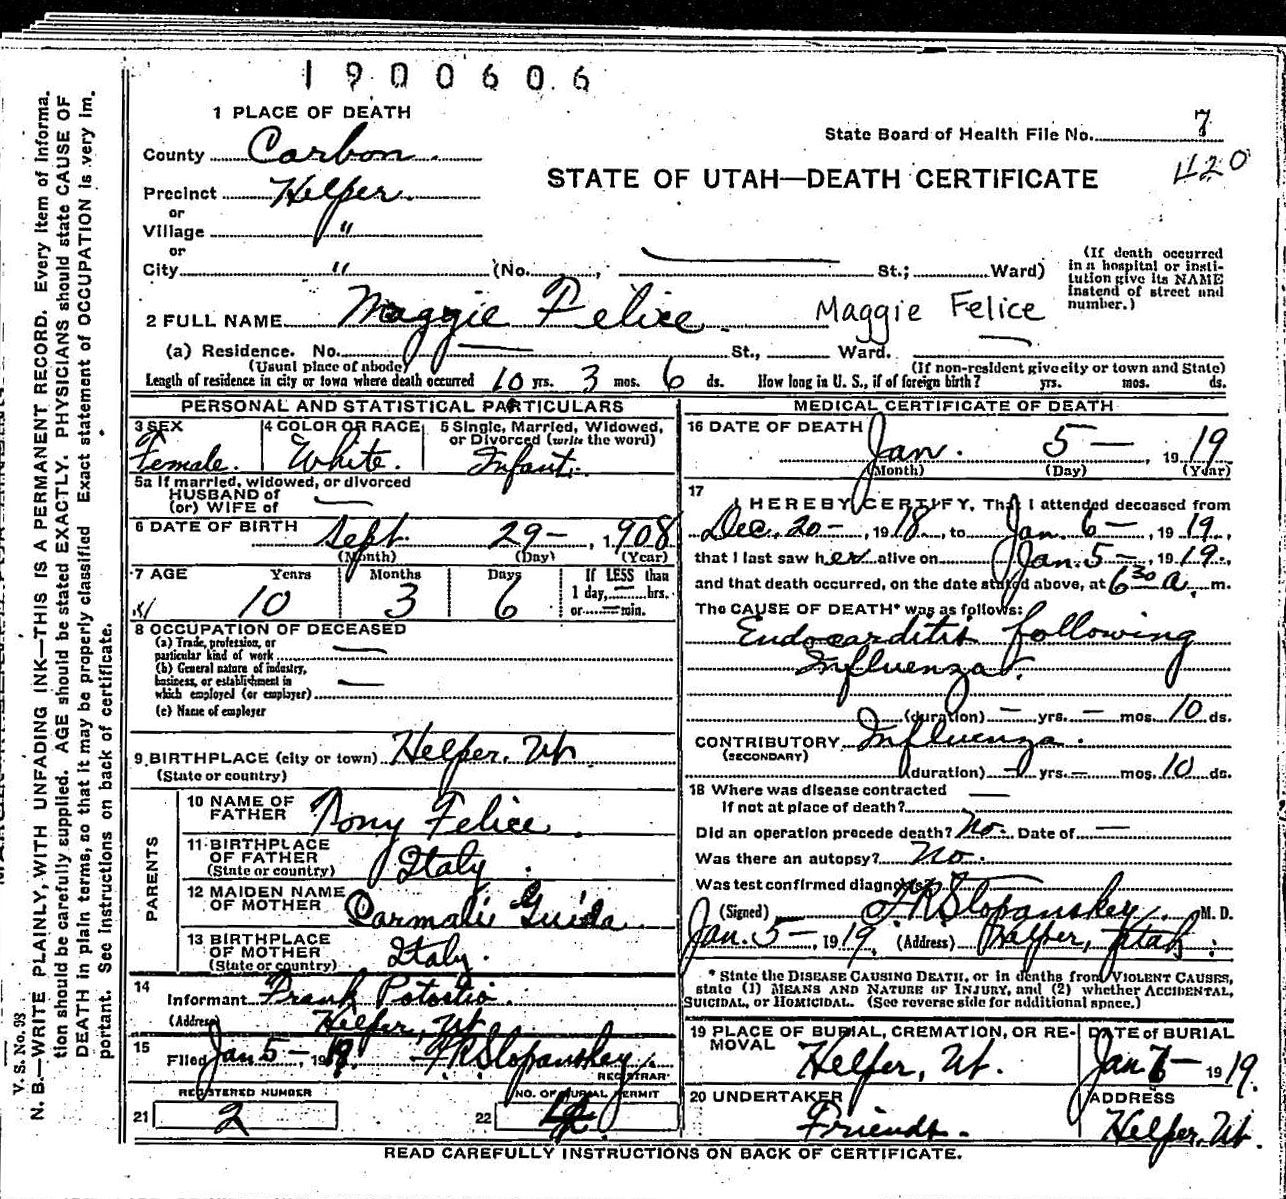 1900606
1 PLACE OF DEATH
State Board of Health File No. 7
420
County Carbon
STATE OF UTAH—DEATH CERTIFICATE
Precinct Helper
or
Village "
or
City " (No. , St.; Ward)
(If death occurred in a hospital or institution give its NAME instead of street and number.)
2 FULL NAME Maggie Felice Maggie Felice
(a) Residence. No. — St., Ward.
(Usual place of abode) (If non-resident give city or town and State)
Length of residence in city or town where death occurred 10 yrs. 3 mos. 6 ds. How long in U. S., if of foreign birth? yrs. mos. ds.
PERSONAL AND STATISTICAL PARTICULARS
3 SEX Female.
4 COLOR OR RACE White.
5 Single, Married, Widowed, or Divorced (write the word) Infant.
5a If married, widowed, or divorced
HUSBAND of
(or) WIFE of —
6 DATE OF BIRTH Sept. 29—, 1908
(Month) (Day) (Year)
7 AGE Years Months Days If LESS than
1 day,—hrs.
or—min.
10 3 6
8 OCCUPATION OF DECEASED
(a) Trade, profession, or
particular kind of work —
(b) General nature of industry,
business, or establishment in
which employed (or employer) —
(c) Name of employer
9 BIRTHPLACE (city or town) Helper, Ut.
(State or country)
PARENTS
10 NAME OF
FATHER Tony Felice.
11 BIRTHPLACE
OF FATHER
(State or country) Italy
12 MAIDEN NAME
OF MOTHER Carmalie Guida
13 BIRTHPLACE
OF MOTHER
(State or country) Italy.
14
Informant Frank Potortio.
(Address) Helper, Ut.
15
Filed Jan 5—1919 F R Slopanskey
REGISTRAR
REGISTERED NUMBER NO. OF BURIAL PERMIT
21 2 22
MEDICAL CERTIFICATE OF DEATH
16 DATE OF DEATH
Jan. 5—, 1919
(Month) (Day) (Year)
17
I HEREBY CERTIFY, That I attended deceased from
Dec. 20—, 1918, to Jan. 6—, 1919,
that I last saw her alive on Jan. 5—, 1919.
and that death occurred, on the date stated above, at 6 30 a. m.
The CAUSE OF DEATH* was as follows:
Endocarditis following
Influenza.
(duration) — yrs. — mos. 10 ds.
CONTRIBUTORY Influenza.
(SECONDARY)
(duration) — yrs. — mos. 10 ds.
18 Where was disease contracted
if not at place of death? —
Did an operation precede death? No. Date of —
Was there an autopsy? No.
Was test confirmed diagnosis?
(Signed) F R Slopanskey M. D.
Jan. 5—, 1919. (Address) Helper, Utah.
* State the DISEASE CAUSING DEATH, or in deaths from VIOLENT CAUSES,
state (1) MEANS AND NATURE OF INJURY, and (2) whether ACCIDENTAL,
SUICIDAL, or HOMICIDAL. (See reverse side for additional space.)
19 PLACE OF BURIAL, CREMATION, OR REMOVAL
Helper, Ut.
DATE OF BURIAL
Jan 7— 1919.
20 UNDERTAKER
Friends.
ADDRESS
Helper, Ut.
READ CAREFULLY INSTRUCTIONS ON BACK OF CERTIFICATE.
V. S. No. 98
N. B.—WRITE PLAINLY, WITH UNFADING INK—THIS IS A PERMANENT RECORD. Every item of information should be carefully supplied. AGE should be stated EXACTLY. PHYSICIANS should state CAUSE OF DEATH in plain terms, so that it may be properly classified. Exact statement of OCCUPATION is very important. See instructions on back of certificate.